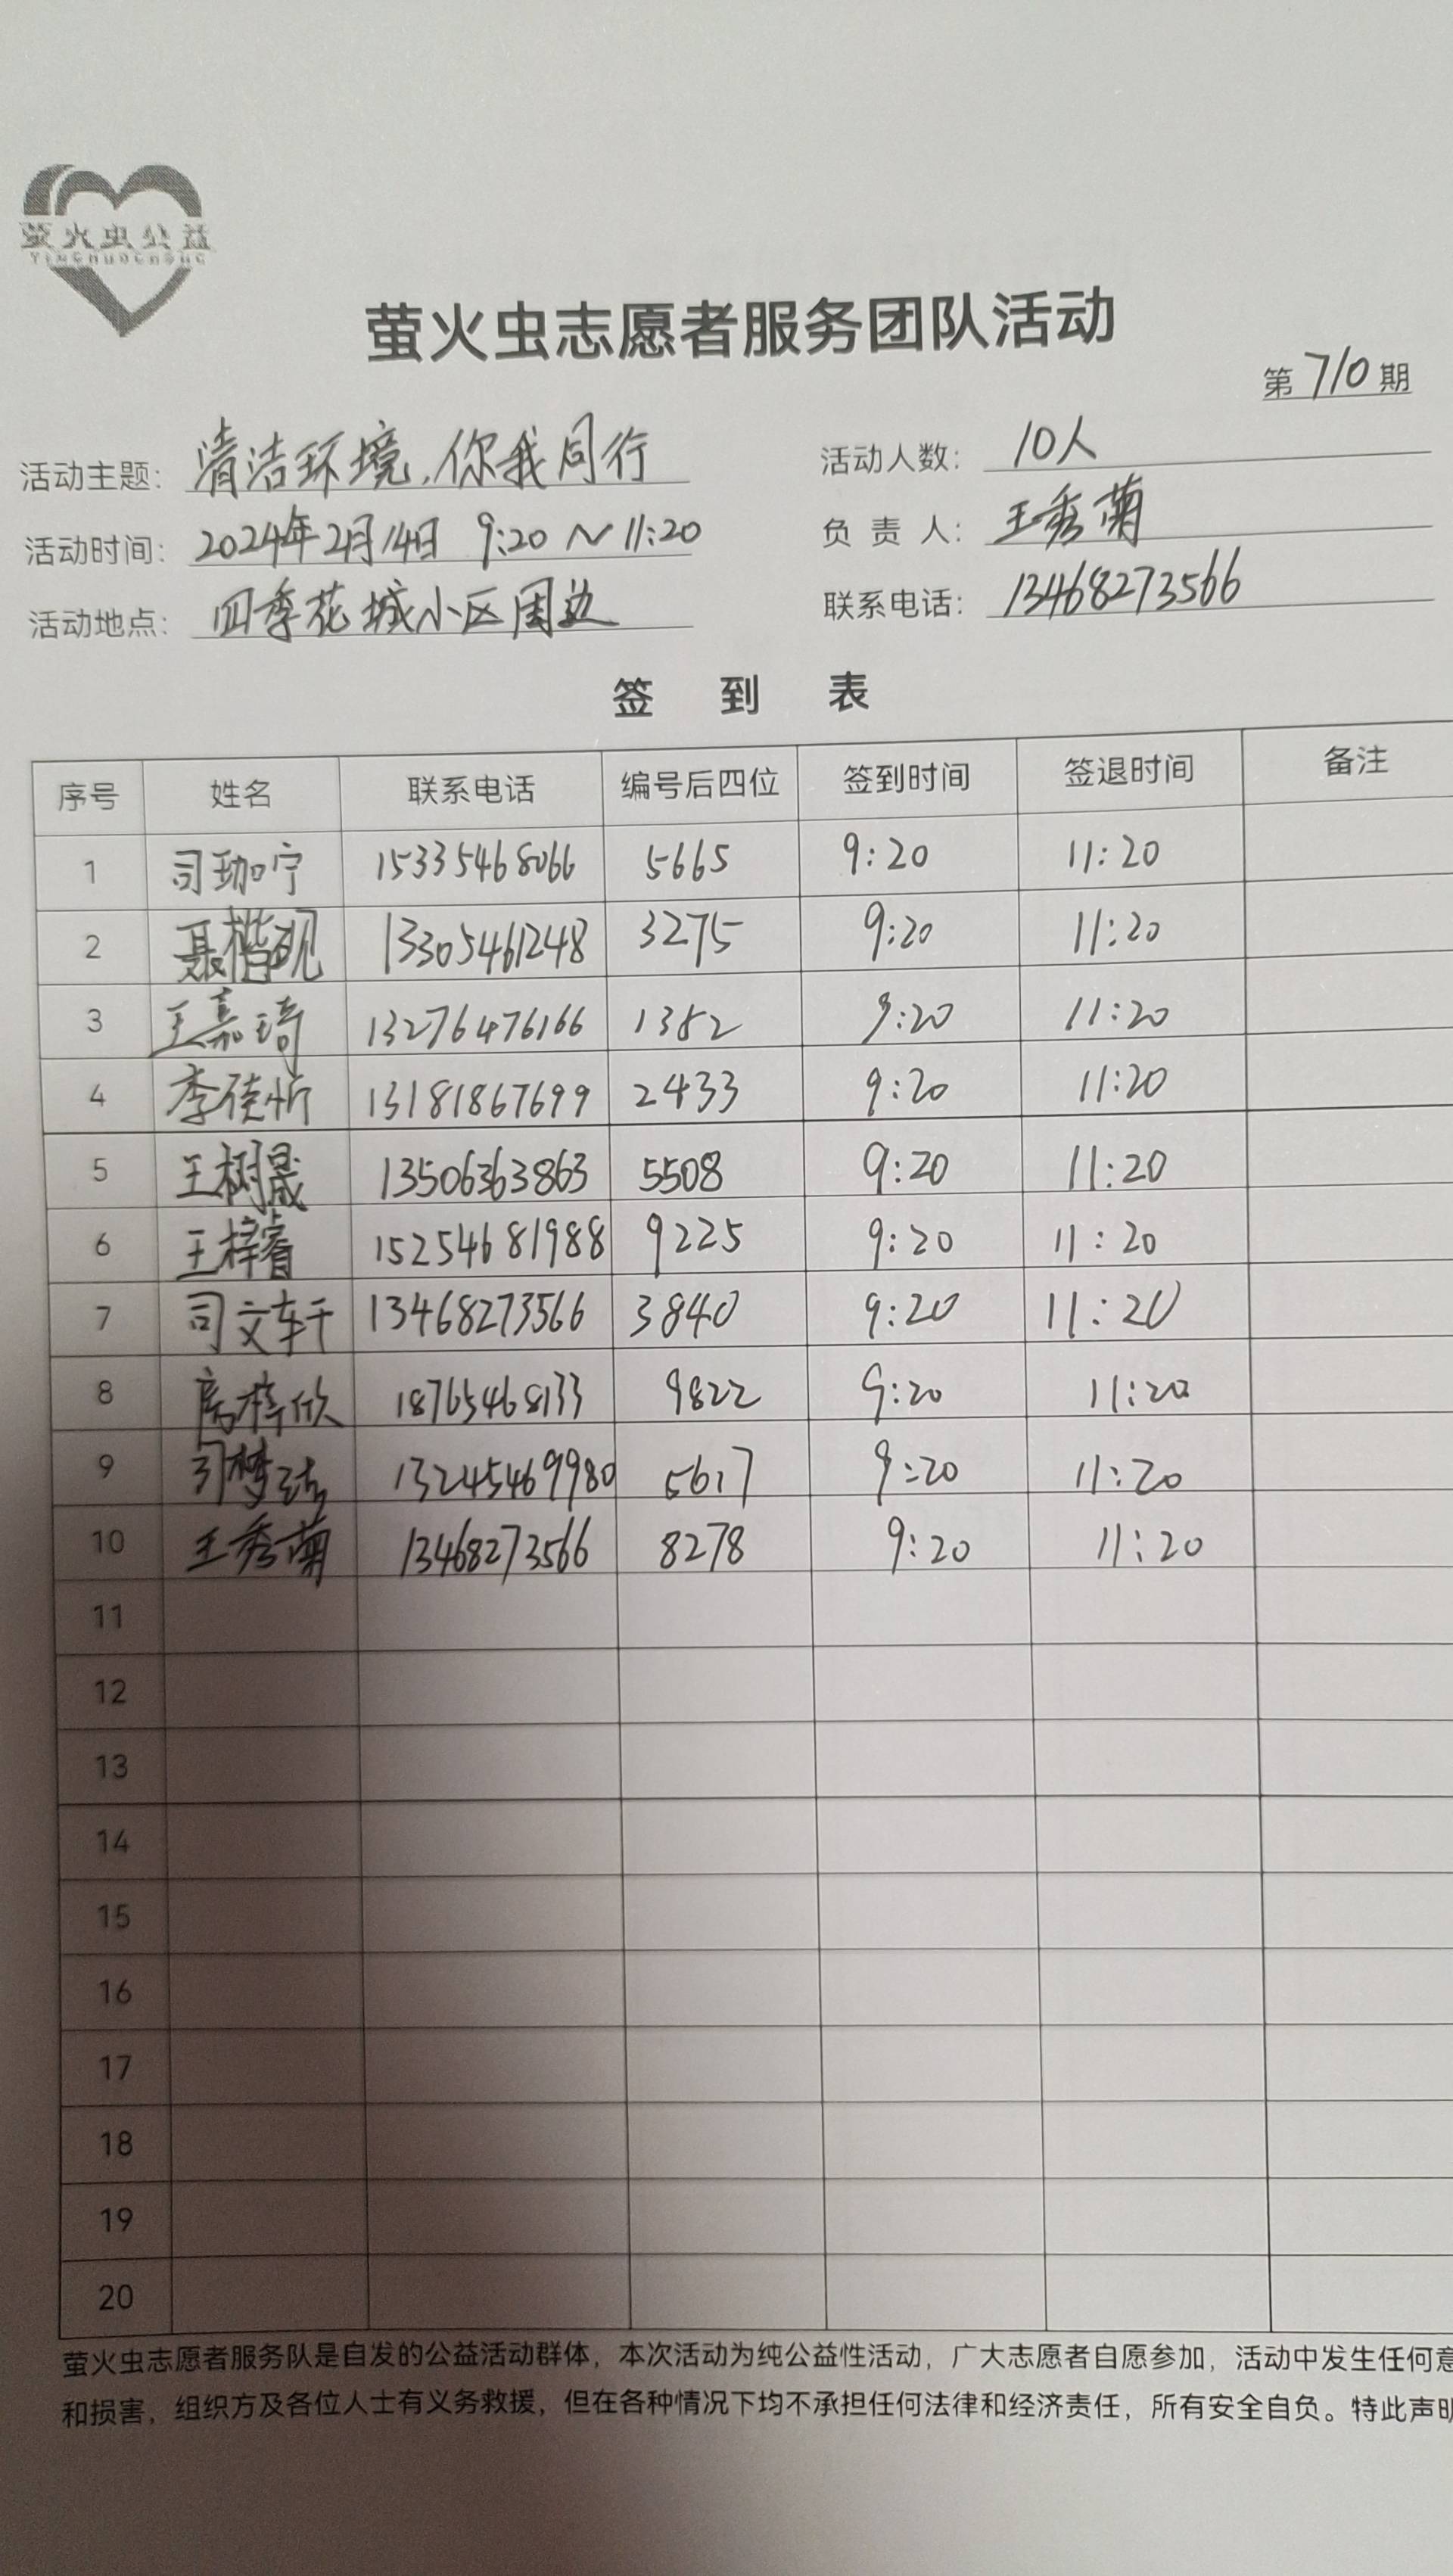 萤火虫公益
YINGHUOCHONG
萤火虫志愿者服务团队活动
第710期
活动主题：清洁环境，你我同行 活动人数：10人
活动时间：2024年2月14日 9:20～11:20 负责人：王秀菊
活动地点：四季花城小区周边 联系电话：13468273566
签到表
序号 姓名 联系电话 编号后四位 签到时间 签退时间 备注
1 司珈宁 15335468066 5665 9:20 11:20
2 聂楷砚 13305461248 3275 9:20 11:20
3 王嘉琦 13276476166 1382 9:20 11:20
4 李佳忻 13181867699 2433 9:20 11:20
5 王树晟 13506363863 5508 9:20 11:20
6 王梓睿 15254681988 9225 9:20 11:20
7 司文轩 13468273566 3840 9:20 11:20
8 高梓欣 18765468133 9822 9:20 11:20
9 13245469980 5617 9:20 11:20
10 王秀菊 13468273566 8278 9:20 11:20
11
12
13
14
15
16
17
18
19
20
萤火虫志愿者服务队是自发的公益活动群体，本次活动为纯公益性活动，广大志愿者自愿参加，活动中发生任何意
和损害，组织方及各位人士有义务救援，但在各种情况下均不承担任何法律和经济责任，所有安全自负。特此声明